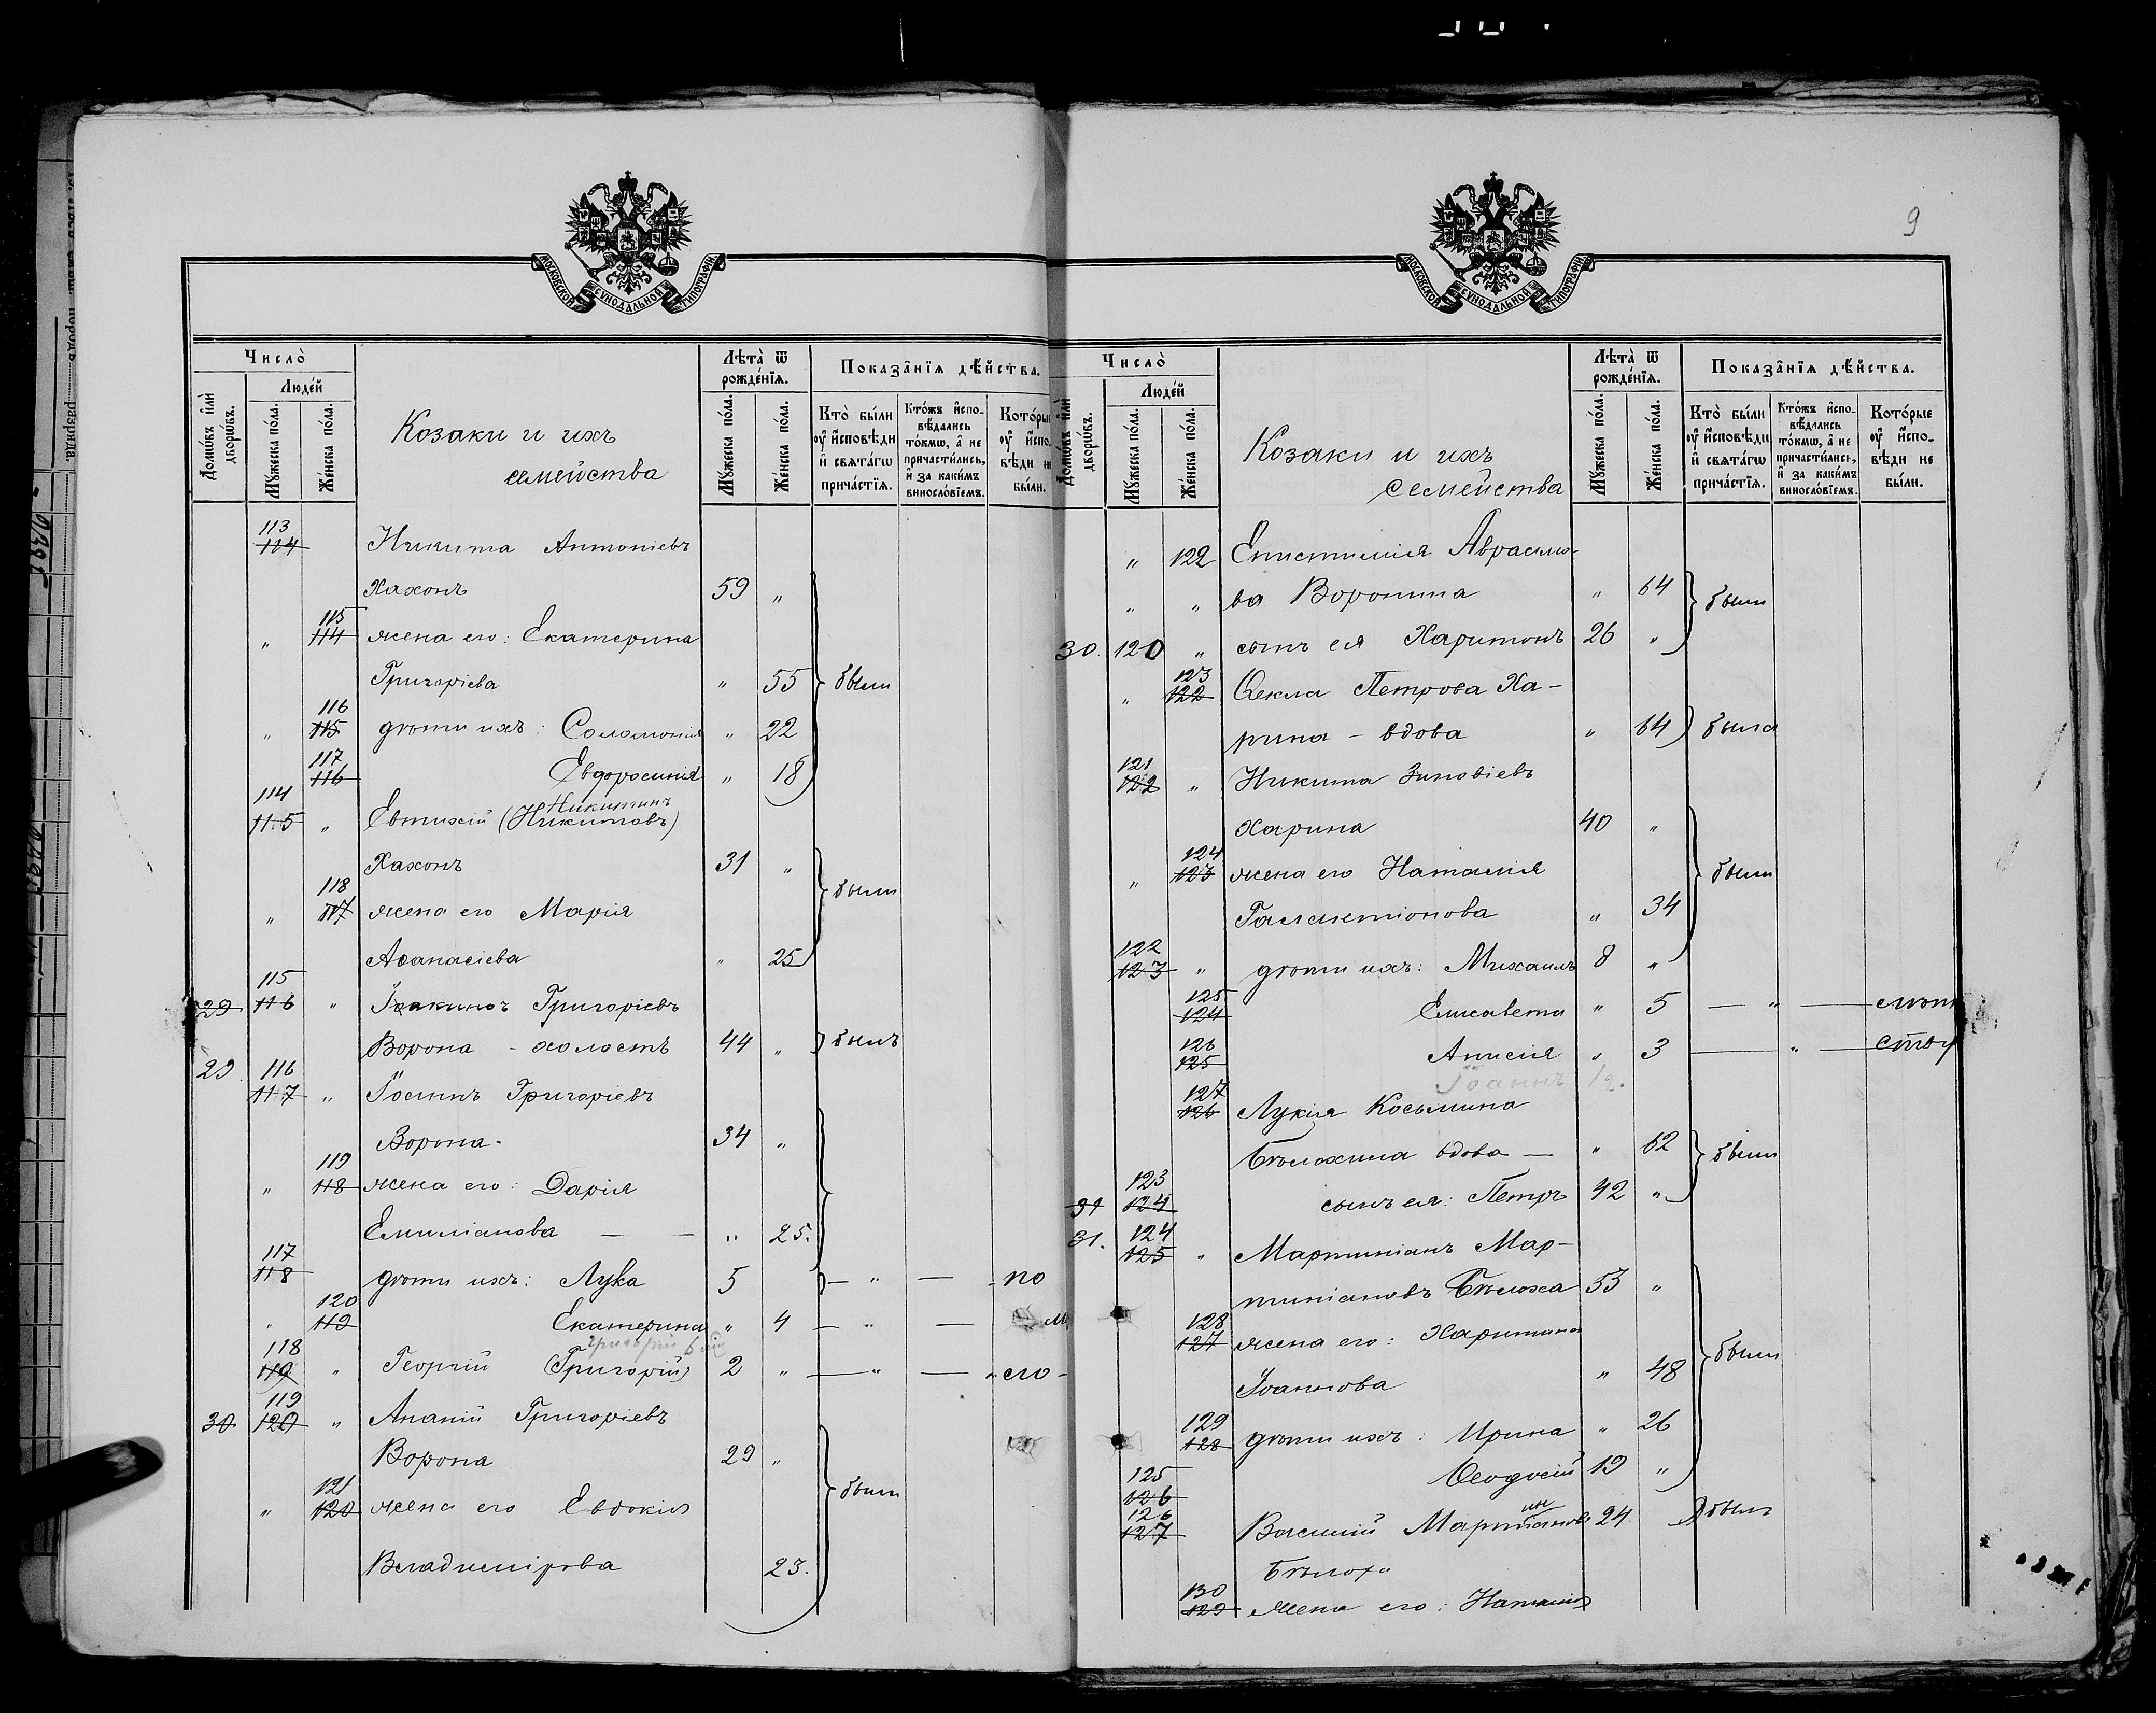 МОСКОВСКОЙ СѴНОДАЛЬНОЙ ТИПОГРАФІИ
Число̀
Людéй
Домѡ́въ и҆лѝ дворѡ́въ.
Мꙋ́жеска по́ла.
Же́нска по́ла.
Козаки и ихъ
семейства
Лѣта̀ ѿ рожде́нїѧ.
Мꙋ́жеска по́ла.
Же́нска по́ла.
Показа̂нїѧ дѣ́йства.
Кто̀ бы́ли ᲂу҆ и҆спо́вѣди и҆ свѧта́гѡ прича́стїѧ.
Кто́жъ и҆спо-вѣ́дались то́кмѡ, а҆ не причасти́лись, и҆ за каки́мъ винослóвїемъ.
Кото́рые
113
124 Никита Антоніевъ
Хахонъ 59 „
115
„ 114 жена его: Екатерина
Григоріева „ 55 были
116
„ 115 дѣти ихъ: Соломонія „ 22
117
116 Евфросинія „ 18
114 Никитинъ
115 „ Евтихій (Никитовъ)
Хахонъ 31 „
118 были
„ 117 жена его Марія
Аѳанасіева „ 25
115
29 116 „ Іоакинѳъ Григоріевъ
Ворона - холостъ 44 „ былъ
29. 116
117 „ Іосифъ Григоріевъ
Ворона- 34 „
119
„ 118 жена его: Дарія
Емиліанова — — „ 25.
117
118 дѣти ихъ: Лука 5 — „ — -по
120
„ 119 Екатерина „ 4 — „ — м
118
119 „ Георгій (Григорій) 2 „ — „ — „ его -
119
30 120 „ Ананій Григоріевъ
Ворона 29 „
121 были
„ 120 жена его Евдокія
Владимірова 23.
9
МОСКОВСКОЙ СѴНОДАЛЬНОЙ ТИПОГРАФІИ
Число̀
Людéй
Домѡ́въ и҆лѝ дворѡ́въ.
Мꙋ́жеска по́ла.
Же́нска по́ла.
Козаки и ихъ
семейства
Лѣта̀ ѿ рожде́нїѧ.
Мꙋ́жеска по́ла.
Же́нска по́ла.
Показа̂нїѧ дѣ́йства.
Кто̀ бы́ли ᲂу҆ и҆спо́вѣди и҆ свѧта́гѡ прича́стїѧ.
Кто́жъ и҆спо-вѣ́дались то́кмѡ, а҆ не причасти́лись, и҆ за каки́мъ винослóвїемъ.
Кото́рые ᲂу҆ и҆спо-вѣди не бы́ли.
„ 122 Епистимія Аврамо-
„ „ ва Воронина „ 64 были
30. 120 „ сынъ ея Харитонъ 26 „
123
„ 122 Ѳекла Петрова Ха-
рина - вдова „ 64 была
121
122 „ Никита Зиновіевъ
Харина 40 „
124
„ 123 жена его Наталія были
Галактіонова „ 34
122
123 „ дѣти ихъ: Михаилъ 8 „
125
124 Елисавета „ 5 — „ —
126
125 Анисія „ 3 — „ —
127 Іоаннъ 1/2.
126 Лукія Косьмина
Бѣлохина вдова — „ 62 были
123
31 124 сынъ ея: Петръ 42 „
31. 124
125 „ Мартиніанъ Мар-
тиніановъ Бѣлоха 53 „
128
127 жена его: Харитина
Іоаннова „ 48 были
129
128 дѣти ихъ: Ирина „ 26
125
126 Ѳеодосій 19 „
126 ин
127 Василій Мартіановъ 24 былъ
Бѣлоха
130
129 жена его: Наталія